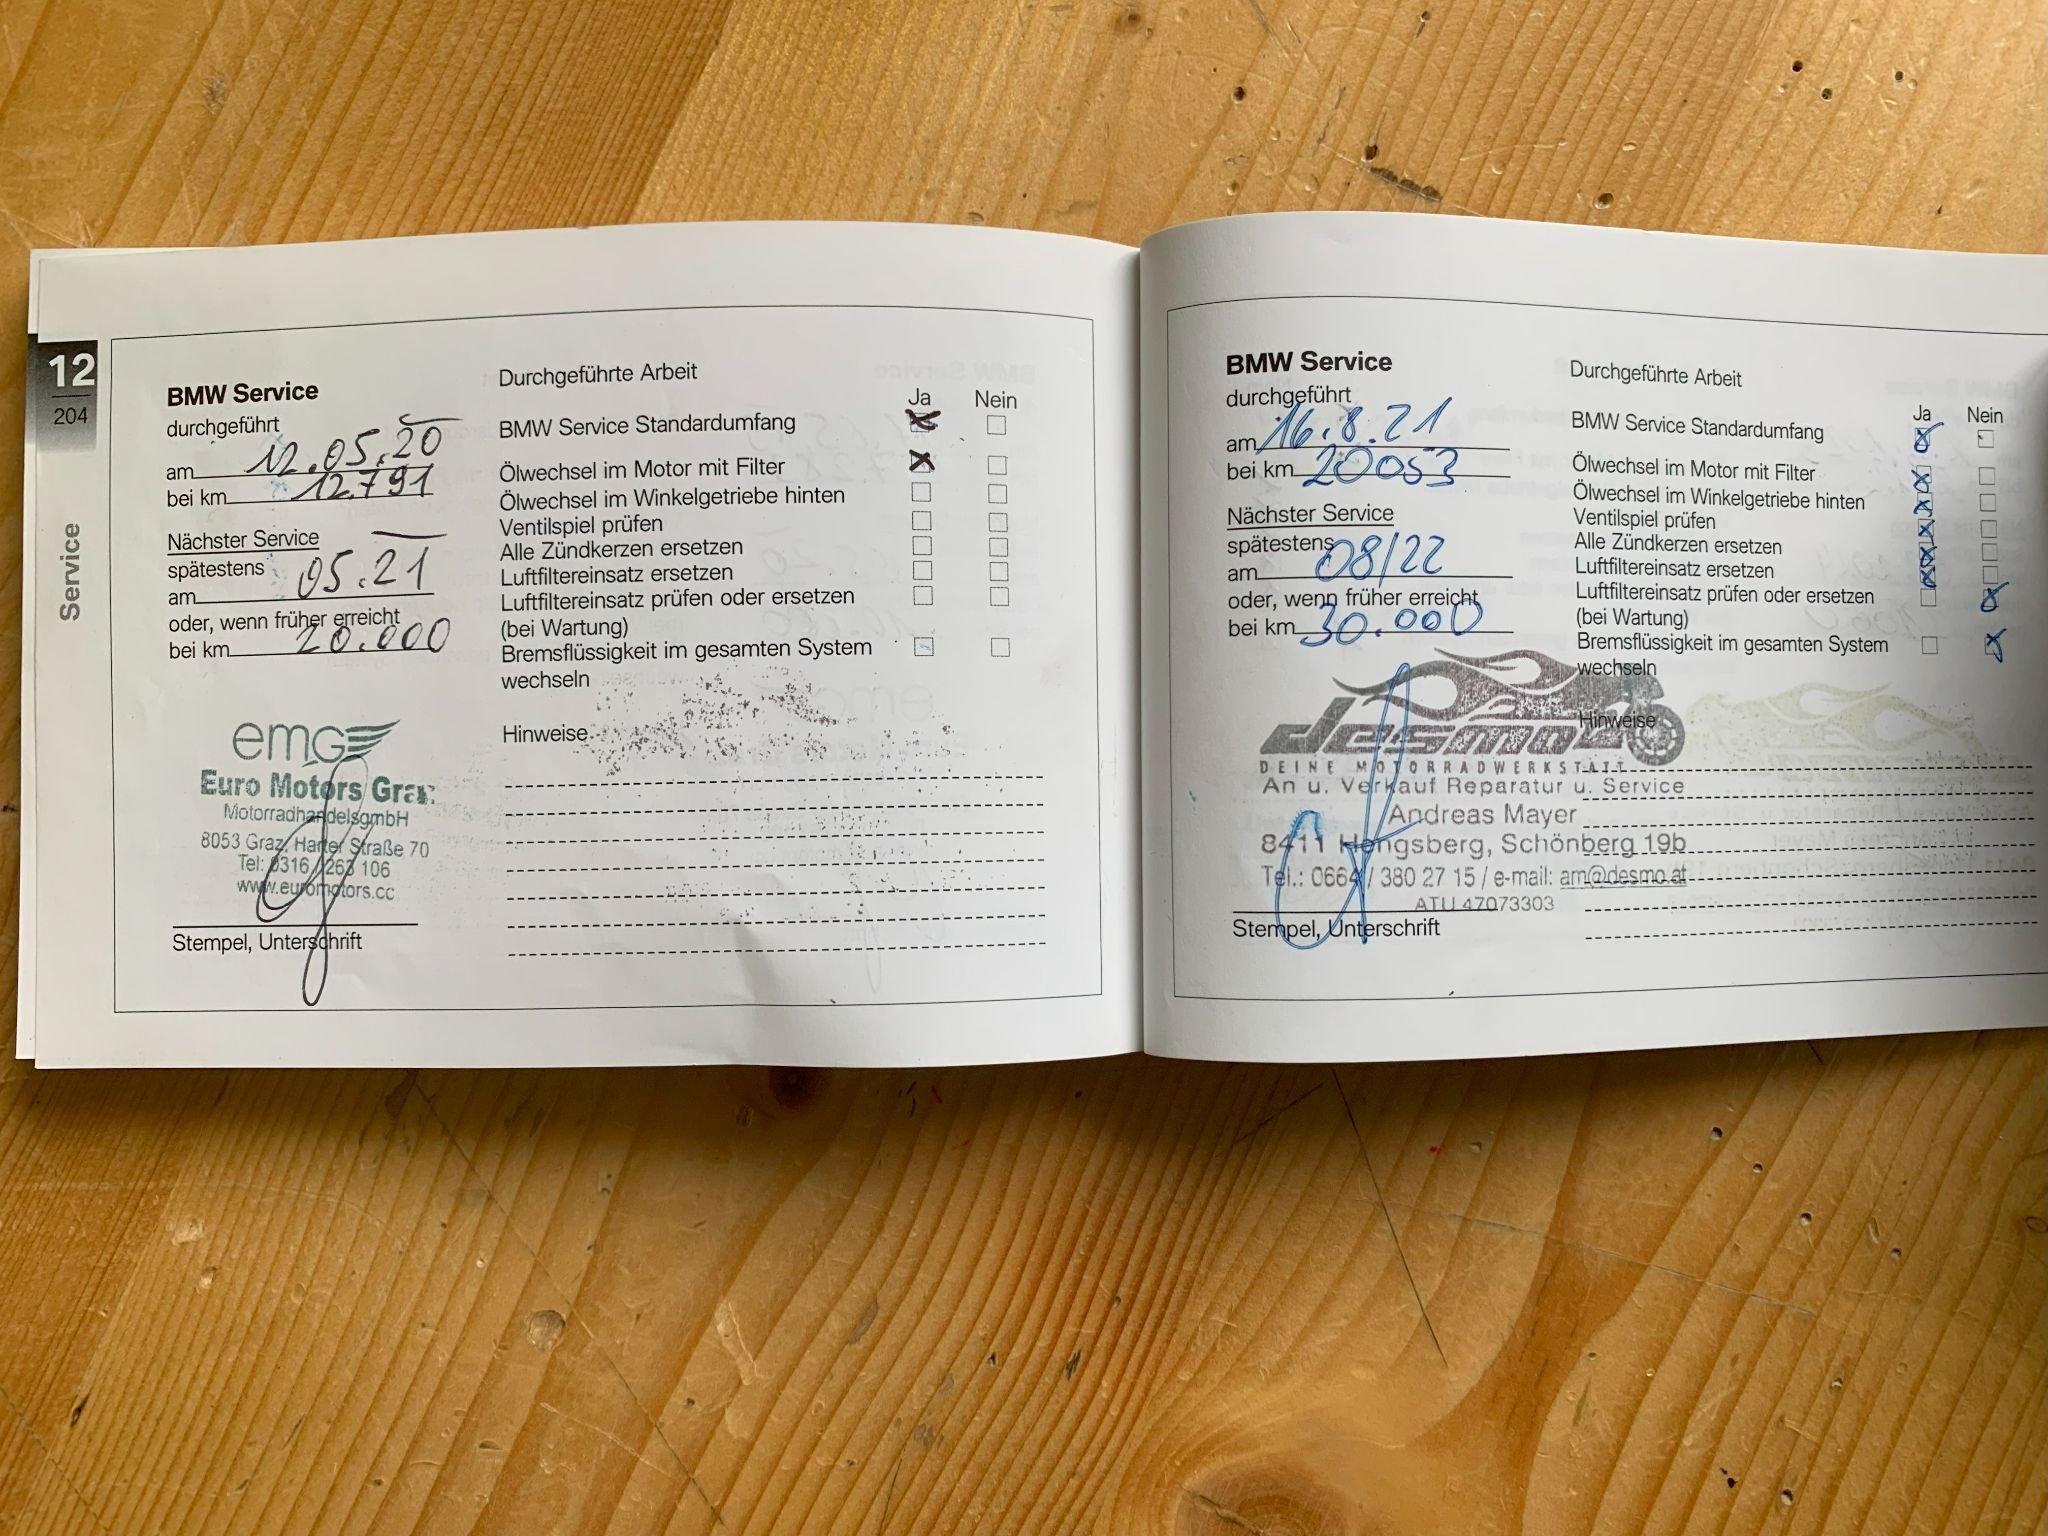 12
204
Service
BMW Service
durchgeführt
am 12.05.20
bei km 12.791
Nächster Service
spätestens
am 05.21
oder, wenn früher erreicht
bei km 20.000
emg
Euro Motors Graz
MotorradhandelsgmbH
8053 Graz, Harter Straße 70
Tel: 0316 / 263 106
www.euromotors.cc
Stempel, Unterschrift
Durchgeführte Arbeit
Ja Nein
BMW Service Standardumfang
Ölwechsel im Motor mit Filter
Ölwechsel im Winkelgetriebe hinten
Ventilspiel prüfen
Alle Zündkerzen ersetzen
Luftfiltereinsatz ersetzen
Luftfiltereinsatz prüfen oder ersetzen
(bei Wartung)
Bremsflüssigkeit im gesamten System
wechseln
Hinweise
BMW Service
durchgeführt
am 16.8.21
bei km 20053
Nächster Service
spätestens
am 08/22
oder, wenn früher erreicht
bei km 30.000
desmo
DEINE MOTORRADWERKSTATT
An u. Verkauf Reparatur u. Service
Andreas Mayer
8411 Hengsberg, Schönberg 19b
Tel.: 0664 / 380 27 15 / e-mail: am@desmo.at
ATU 47073303
Stempel, Unterschrift
Durchgeführte Arbeit
Ja Nein
BMW Service Standardumfang
Ölwechsel im Motor mit Filter
Ölwechsel im Winkelgetriebe hinten
Ventilspiel prüfen
Alle Zündkerzen ersetzen
Luftfiltereinsatz ersetzen
Luftfiltereinsatz prüfen oder ersetzen
(bei Wartung)
Bremsflüssigkeit im gesamten System
wechseln
Hinweise